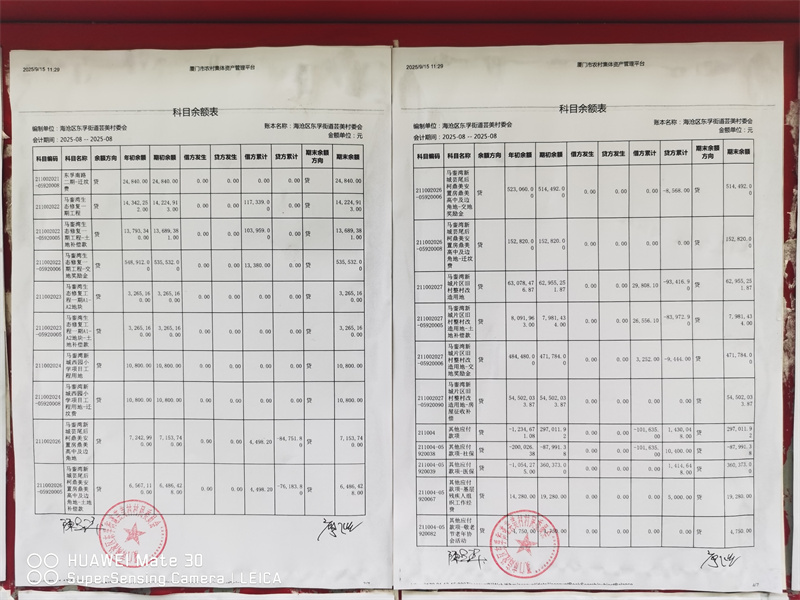 2025/9/15 11:29
厦门市农村集体资产管理平台
科目余额表
编制单位：海沧区东孚街道芸美村委会
账本名称：海沧区东孚街道芸美村委会
会计期间：2025-08 -- 2025-08
金额单位：元
科目编码 科目名称 余额方向 年初余额 期初余额 借方发生 贷方发生 借方累计 贷方累计 期末余额方向 期末余额
211002021-05920008 东孚南路二期-迁坟费 贷 24,840.00 24,840.00 0.00 0.00 0.00 0.00 贷 24,840.00
211002022 马銮湾生态修复一期工程 贷 14,342,252.00 14,224,913.00 0.00 0.00 117,339.00 0.00 贷 14,224,913.00
211002022-05920005 马銮湾生态修复一期工程-土地补偿款 贷 13,793,340.00 13,689,381.00 0.00 0.00 103,959.00 0.00 贷 13,689,381.00
211002022-05920006 马銮湾生态修复一期工程-交地奖励金 贷 548,912.00 535,532.00 0.00 0.00 13,380.00 0.00 贷 535,532.00
211002023 马銮湾生态修复工程一期A1-A2地块 贷 3,265,160.00 3,265,160.00 0.00 0.00 0.00 0.00 贷 3,265,160.00
211002023-05920005 马銮湾生态修复工程一期A1-A2地块-土地补偿款 贷 3,265,160.00 3,265,160.00 0.00 0.00 0.00 0.00 贷 3,265,160.00
211002024 马銮湾新城西园小学项目工程用地 贷 10,800.00 10,800.00 0.00 0.00 0.00 0.00 贷 10,800.00
211002024-05920008 马銮湾新城西园小学项目工程用地-迁坟费 贷 10,800.00 10,800.00 0.00 0.00 0.00 0.00 贷 10,800.00
211002026 马銮湾新城芸尾后柯鼎美安置房鼎美高中及边角地 贷 7,242,990.00 7,153,740.00 0.00 0.00 4,498.20 -84,751.80 贷 7,153,740.00
211002026-05920005 马銮湾新城芸尾后柯鼎美安置房鼎美高中及边角地-土地补偿款 贷 6,567,110.00 6,486,428.00 0.00 0.00 4,498.20 -76,183.80 贷 6,486,428.00
2025/9/15 11:29
厦门市农村集体资产管理平台
科目余额表
编制单位：海沧区东孚街道芸美村委会
账本名称：海沧区东孚街道芸美村委会
会计期间：2025-08 -- 2025-08
金额单位：元
科目编码 科目名称 余额方向 年初余额 期初余额 借方发生 贷方发生 借方累计 贷方累计 期末余额方向 期末余额
211002026-05920006 马銮湾新城芸尾后柯鼎美安置房鼎美高中及边角地-交地奖励金 贷 523,060.00 514,492.00 0.00 0.00 0.00 -8,568.00 贷 514,492.00
211002026-05920008 马銮湾新城芸尾后柯鼎美安置房鼎美高中及边角地-迁坟费 贷 152,820.00 152,820.00 0.00 0.00 0.00 0.00 贷 152,820.00
211002027 马銮湾新城片区旧村整村改造用地 贷 63,078,476.87 62,955,251.87 0.00 0.00 29,808.10 -93,416.90 贷 62,955,251.87
211002027-05920005 马銮湾新城片区旧村整村改造用地-土地补偿款 贷 8,091,963.00 7,981,434.00 0.00 0.00 26,556.10 -83,972.90 贷 7,981,434.00
211002027-05920006 马銮湾新城片区旧村整村改造用地-交地奖励金 贷 484,480.00 471,784.00 0.00 0.00 3,252.00 -9,444.00 贷 471,784.00
211002027-05920090 马銮湾新城片区旧村整村改造用地-房屋征收补偿 贷 54,502,033.87 54,502,033.87 0.00 0.00 0.00 0.00 贷 54,502,033.87
211004 其他应付款项 贷 -1,234,671.08 297,011.92 0.00 0.00 -101,635.00 1,430,048.00 贷 297,011.92
211004-05920038 其他应付款项-社保 贷 -200,026.38 -87,991.38 0.00 0.00 -101,635.00 10,400.00 贷 -87,991.38
211004-05920039 其他应付款项-医保 贷 -1,054,275.00 360,373.00 0.00 0.00 0.00 1,414,648.00 贷 360,373.00
211004-05920067 其他应付款项-基层残疾人组织工作经费 贷 14,280.00 19,280.00 0.00 0.00 0.00 5,000.00 贷 19,280.00
211004-05920082 其他应付款项-敬老节老年协会活动 贷 4,750.00 0.00 0.00 0.00 0.00 贷 4,750.00
HUAWEI Mate 30
SuperSensing Camera | LEICA